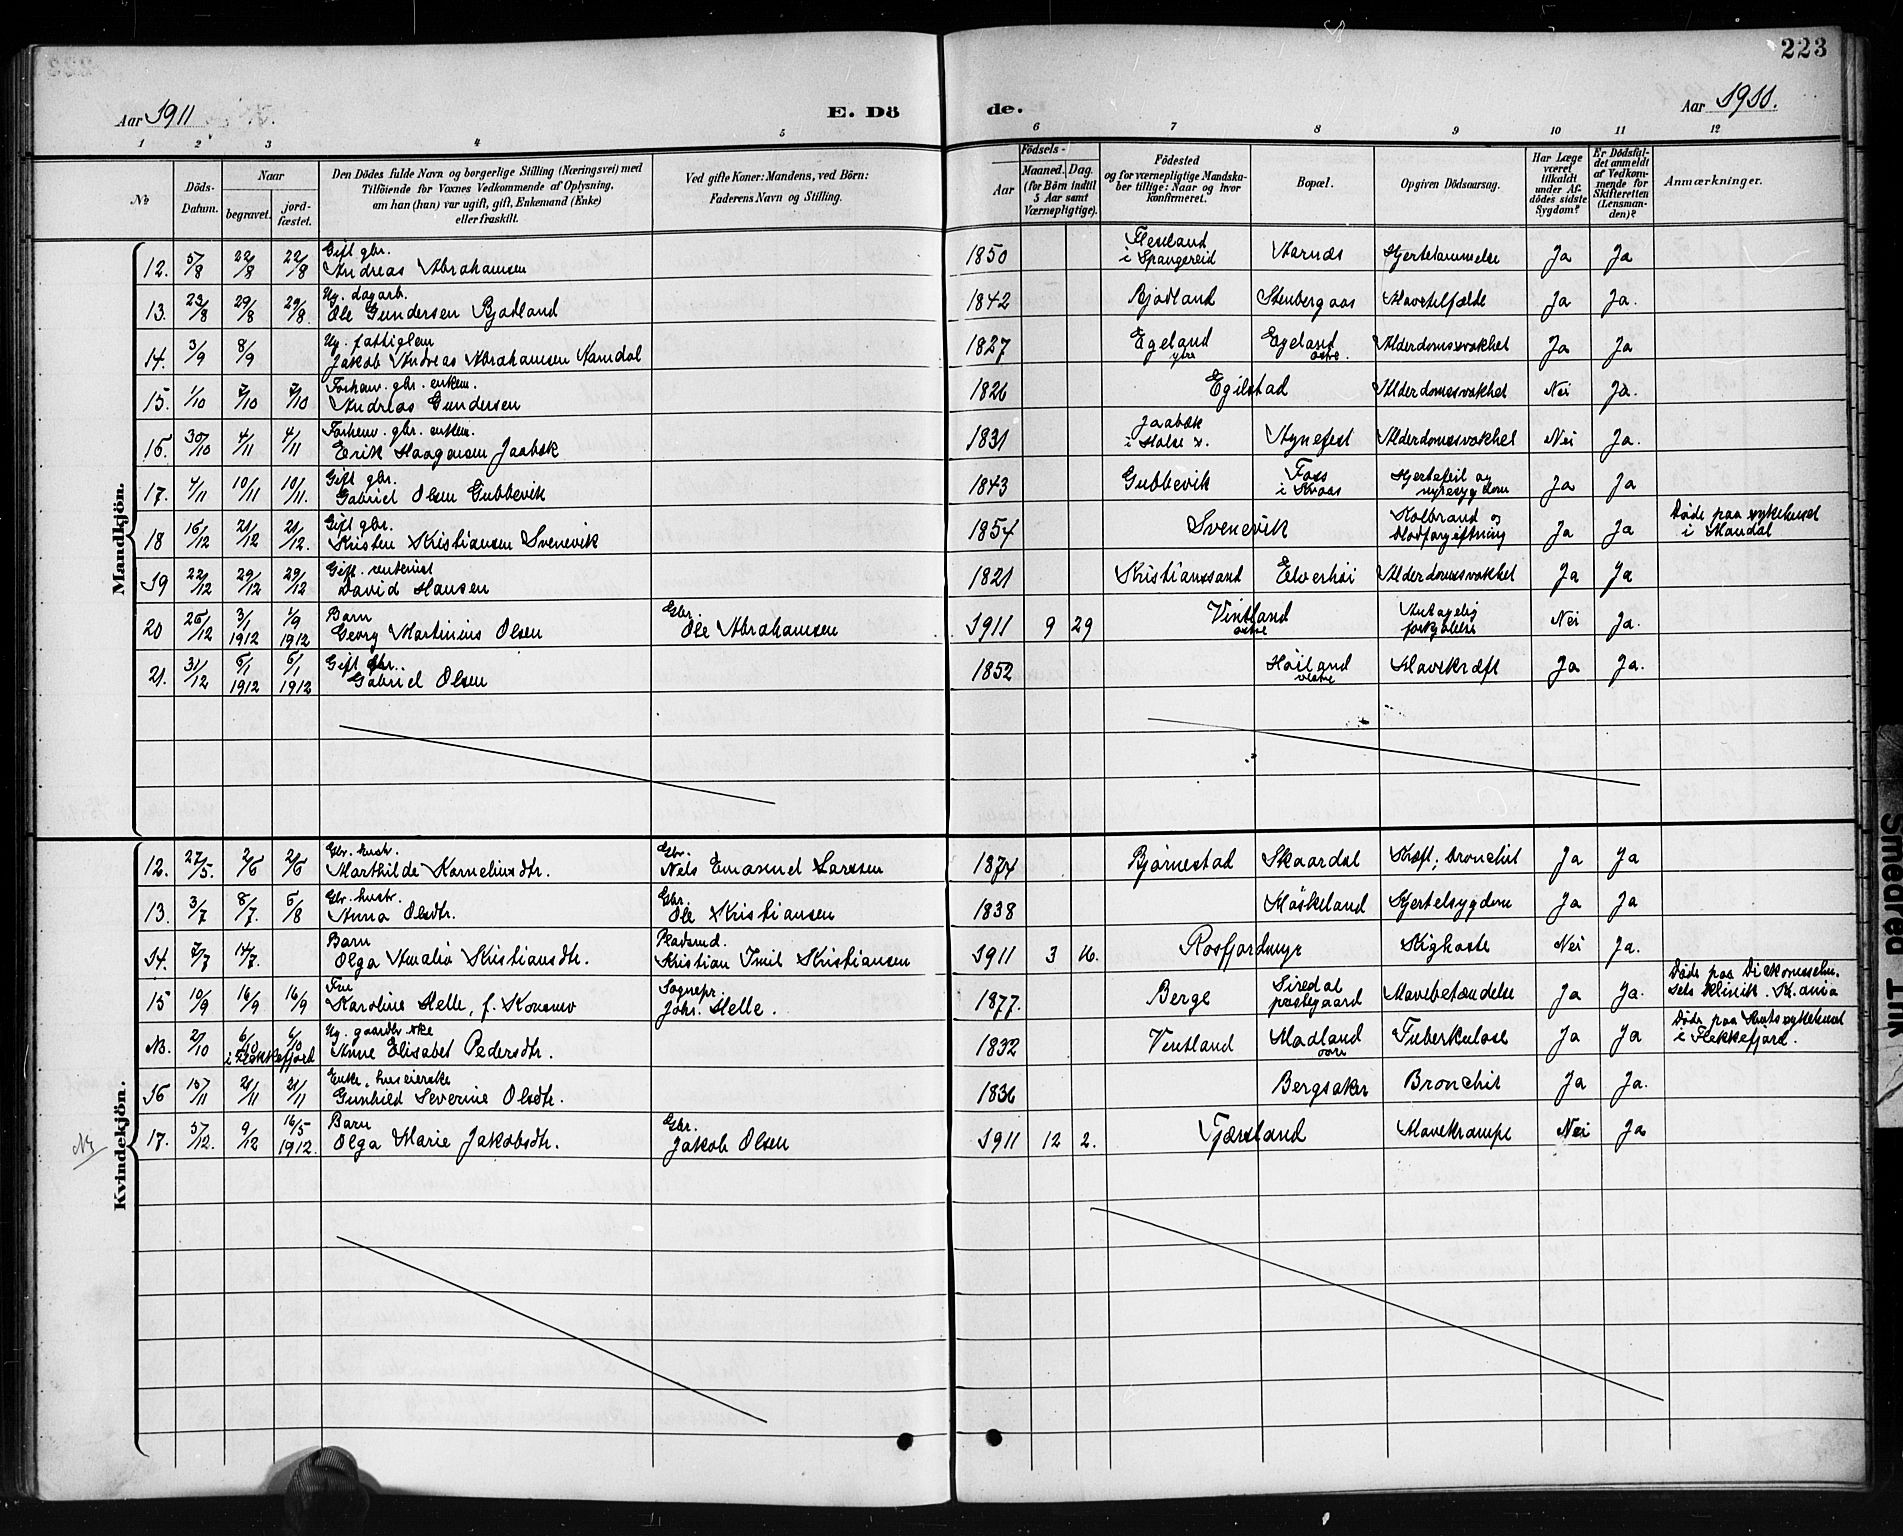 223
Aar 1911
E. Dö
de.
Aar 1911.
1 2 3 4 5 6 7 8 9 10 11 12
No
Döds-Datum.
Naar
begravet.
jord-fæstet.
Den Dödes fulde Navn og borgerlige Stilling (Næringsvei) med
Tilföiende for Voxnes Vedkommende af Oplysning,
om han (hun) var ugift, gift, Enkemand (Enke)
eller fraskilt.
Ved gifte Koner: Mandens, ved Börn:
Faderens Navn og Stilling.
Födsels-
Aar
Maaned. Dag.
(for Börn indtil
5 Aar samt
Værnepligtige).
Födested
og for værnepligtige Mandska-
ber tillige: Naar og hvor
konfirmeret.
Bopæl.
Opgiven Dödsaarsag.
Har Læge
været
tilkaldt
under Af-
dödes sidste
Sygdom?
Er Dödsfal-
det anmeldt
af Vedkom-
mende for
Skifteretten
(Lensman-
den)?
Anmærkninger.
Mandkjön.
12. 5/8 22/8 22/8 Gift gbr. Andreas Abrahamsen 1850 i Spangereid Aarnæs Hjertelammelse Ja Ja
13. 23/8 29/8 29/8 Ug. dagarb. Ole Gundersen Bjodland 1842 Bjodland Stenbergaas Mavetilfælde Ja Ja.
14. 3/9 8/9 Ug. fattiglem Jakob Andreas Abrahamsen Aamdal 1827 Egeland ytre Egeland østre. Alderdomssvakhet Ja Ja
15. 1/10 7/10 7/10 Forhenv. gbr. enkem. Andreas Gundersen 1826 Egilstad Alderdomssvakhet Nei Ja.
16. 30/10 4/11 4/11 Forhenv. gbr. enkem. Erik Haagensen Jaabæk 1831 Jaabæk i Halse s. Agnefest Alderdomssvakhet Nei Ja.
17. 4/11 10/11 10/11. Gift gbr. Gabriel Olsen Gubbevik 1843 Gubbevik Foss i Kvaas Hjertefeil og nyresygdom Ja Ja
18 16/12 21/12 21/12. Gift gbr. Kristen Kristiansen Svenevik 1854 Svenevik Kolbrand og blodforgiftning Ja Ja Døde paa sykehuset i Mandal
19 22/12 29/12 29/12 Gift. David Hansen 1821 Kristianssand Elverhöi Alderdomssvakhet Ja Ja
20 26/12 3/1 1912 1/9 1912 Barn Georg Martinius Olsen Gbr. Ole Abrahamsen 1911 9 29 Vintland østre Antagelig forkjølelse Nei Ja.
21. 31/12 6/1 1912 6/1 1912 Gift gbr. Gabriel Olsen 1852 Høiland vestre Mavekræft Ja Ja.
Kvindekjön.
12. 27/5. 2/6 2/6 Gbr. hustr. Marthilde Korneliusdtr. Gbr. Nels Emanuel Larssen 1874 Bjørnestad Skaardal Kræft; bronchit Ja Ja
13. 3/7 8/7. 6/8 Gbr. hustr. Anna Olsdtr. Gbr. Ole Kristiansen 1838 Møskeland Hjertelsygdom Ja Ja
14. 7/7 14/7. Barn Olga Amalia Kristiansdtr. Pladsmd. Kristian Emil Kristiansen 1911 3 16. Rosfjordmyr Kighoste Nei Ja.
15 10/9 16/9 16/9 Fru Karoline Helle, f. Sognepr. Johs. Helle. 1877. Berge Siredal prestegaard Mavebetændelse Ja Ja. Døde paa Diakonissehu-sets klinik. Kr.ania
N3. 2/10 6/10 6/10 i Flekkefjord Ug. gaardbr.ske Anne Elisabet Pedersdtr. 1832 Vintland Madland Tuberkulose Ja Ja Døde paa Amtssykehuset i Flekkefjord.
16 15/11 21/11 21/11 Enke, huseierske Gunhild Severine Olsdtr. 1836 Bergsaker Bronchit Ja Ja.
17. 5/12. 9/12 16/5 1912. Barn Olga Marie Jakobsdtr. Gbr. Jakob Olsen 1911 12 2. Fjæreland Mavekrampe Nei Ja